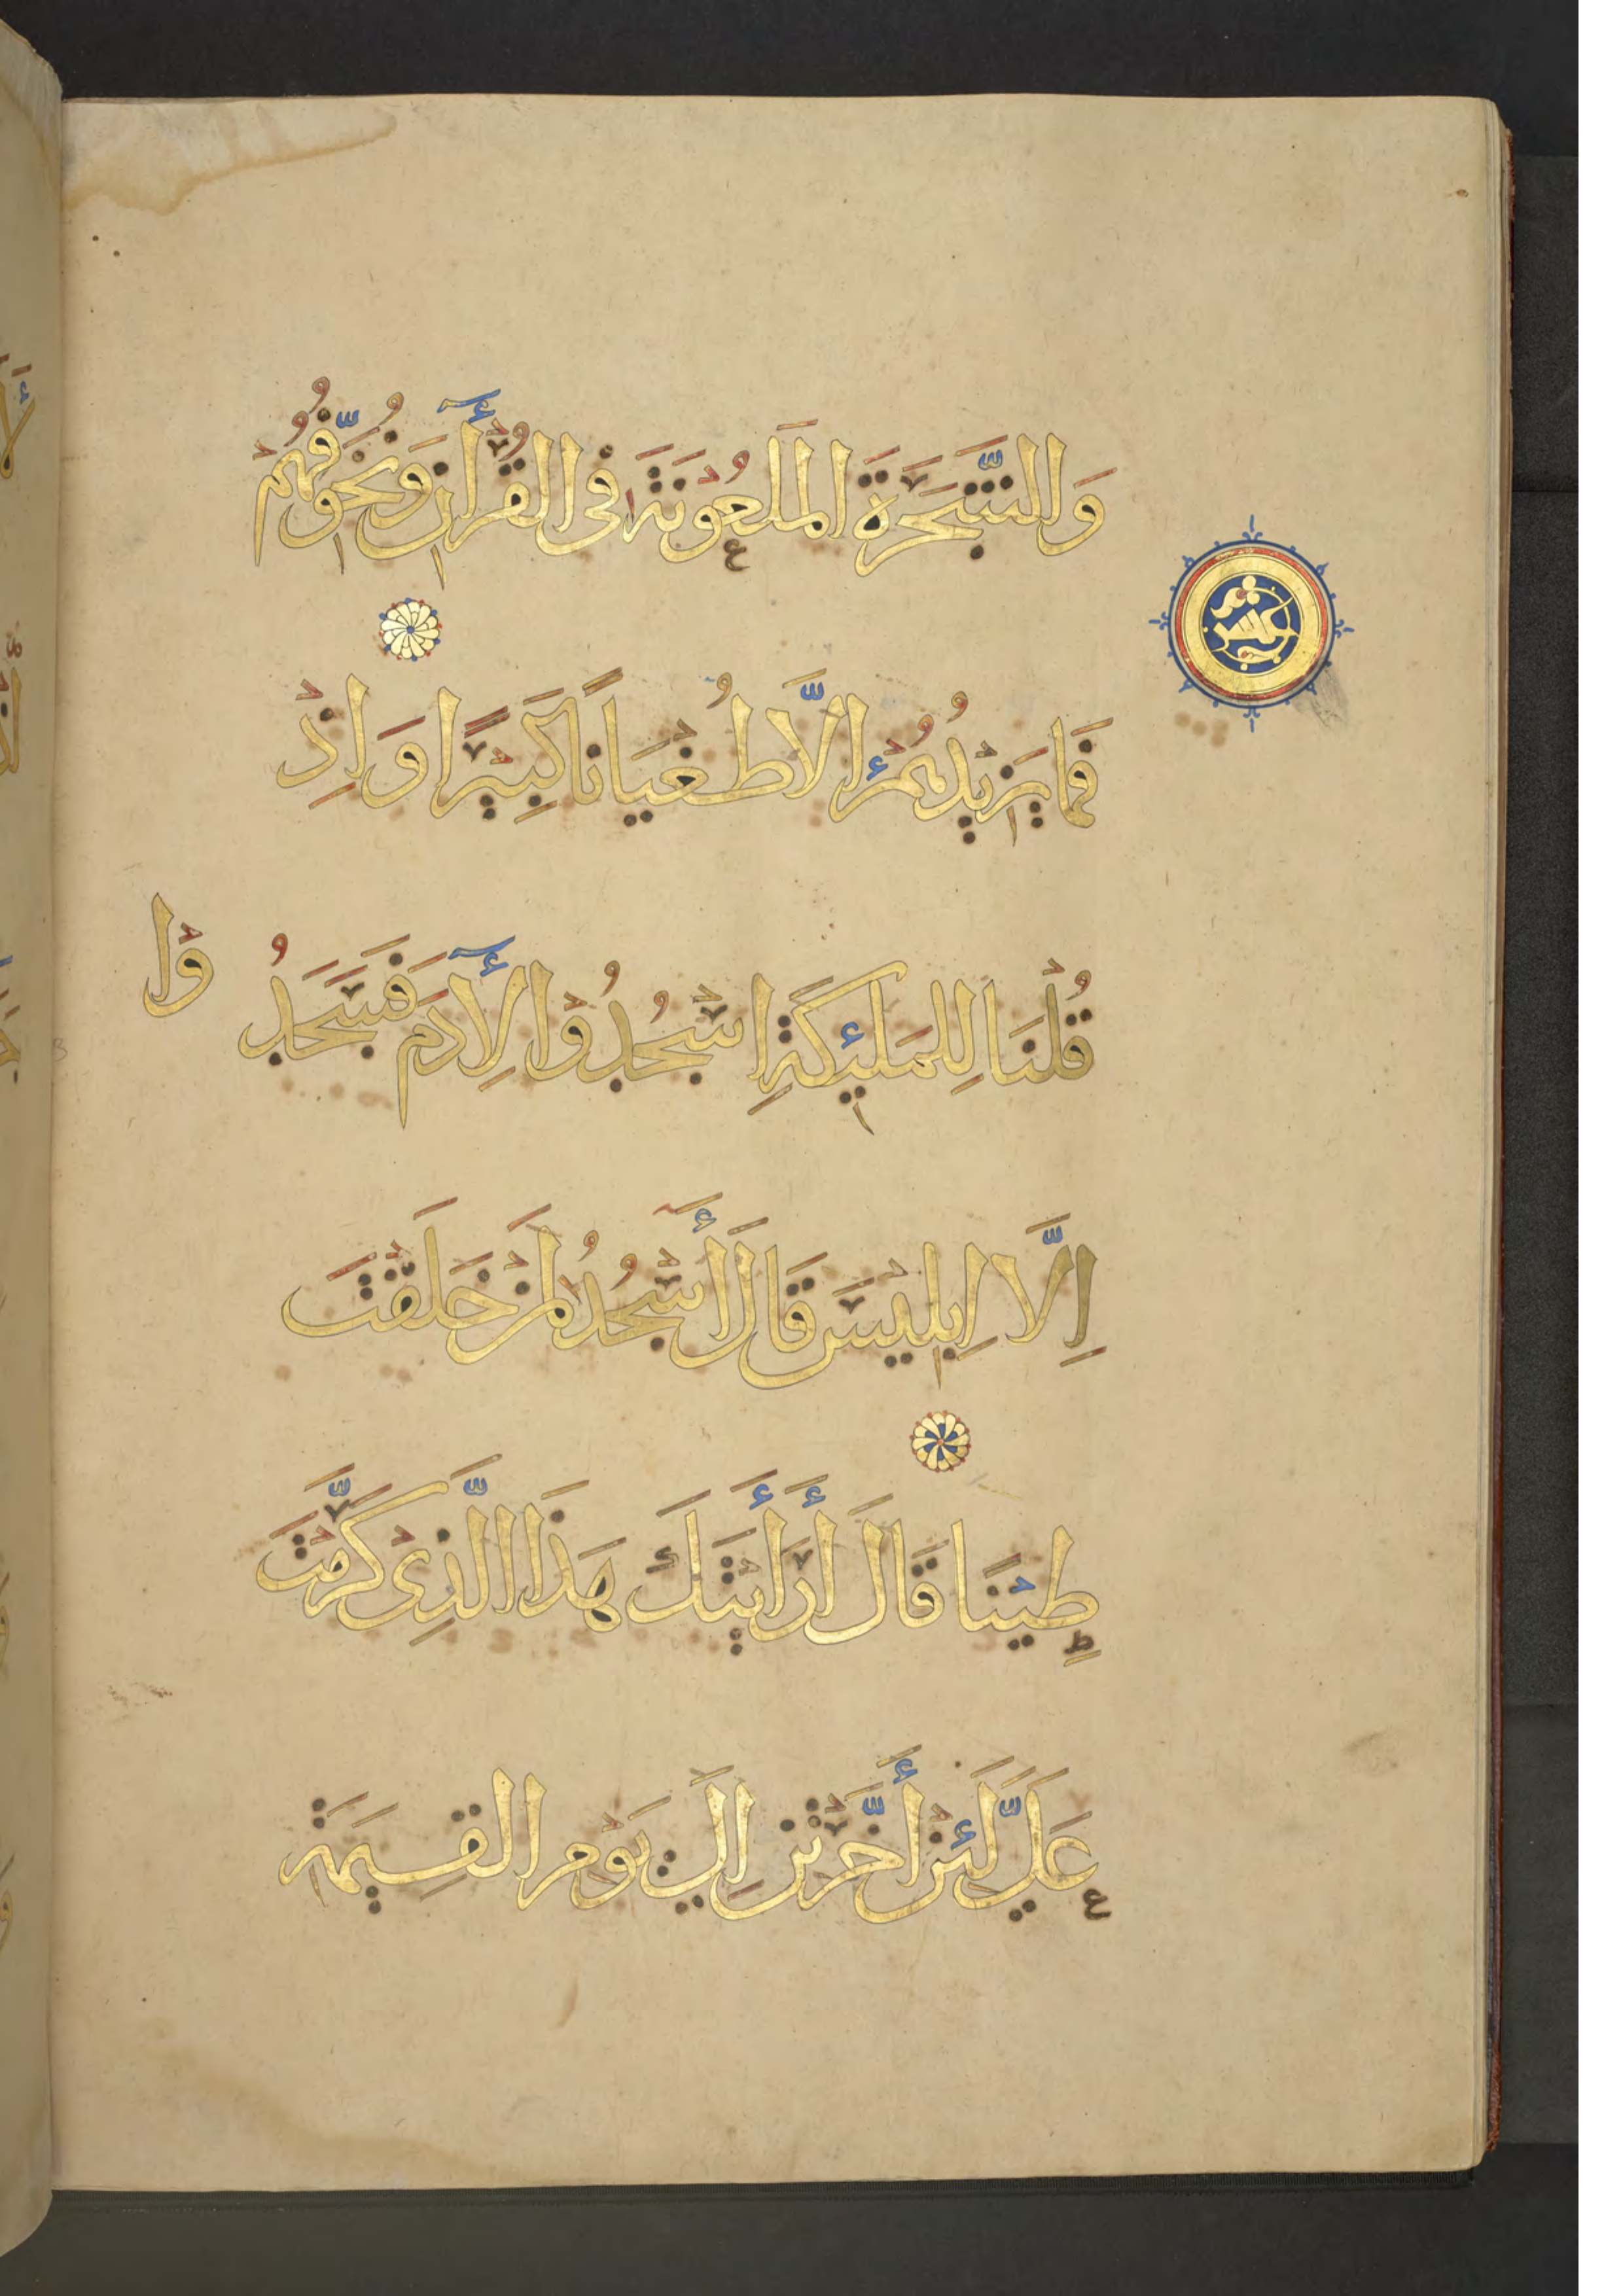 وَالشَّجَرَةَ الْمَلْعُوْنَةَ فِى الْقُرْأٓنِ وَنُخَوِّفُهُمْ
فَمَا يَزِيْدُهُمْ إِلَّا طُغْيَانًا كَبِيْرًا وَاِذْ
قُلْنَا لِلْمَلٰئِكَةِ اسْجُدُوْا لِأٓدَمَ فَسَجَدُوْا
اِلَّا اِبْلِيْسَ قَالَ أَسْجُدُ لِمَنْ خَلَقْتَ
طِيْنًا قَالَ أَرَأَيْتَكَ هَذَا الَّذِىْ كَرَّمْتَ
عَلَيَّ لَئِنْ أَخَّرْتَنِ اِلَي يَوْمِ الْقِيٰمَةِ